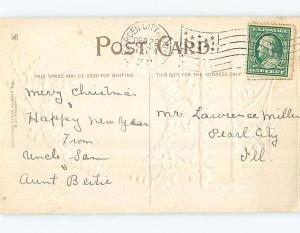 POST CARD
THIS SPACE MAY BE USED FOR WRITING
THIS SIDE FOR THE ADDRESS
Merry Christmas
&
Happy New Year
From
Uncle Sam
&
Aunt Bertie
Mr. Lawrence Miller
Pearl City
Ill